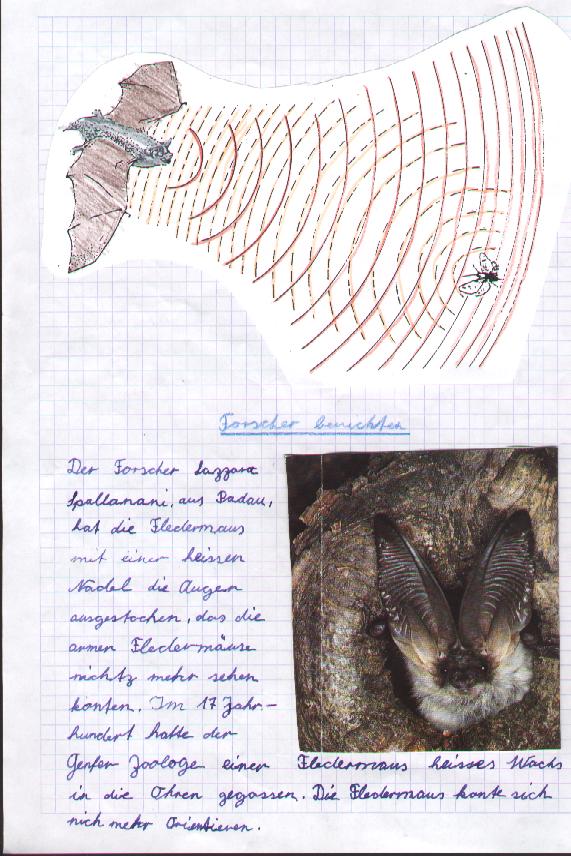 Forscher berichten
Der Forscher Lazzara
Spallanani, aus Padau,
hat die Fledermaus
mit einer heissen
Nadel die Augen
ausgestochen, das die
armen Fledermäuse
nichtz mehr sehen
konten. Im 17 Jahr-
hundert hatte der
Genfer Zoologe einer Fledermaus heisses Wachs
in die Ohren gegossen. Die Fledermaus konte sich
nich mehr Orientieren.